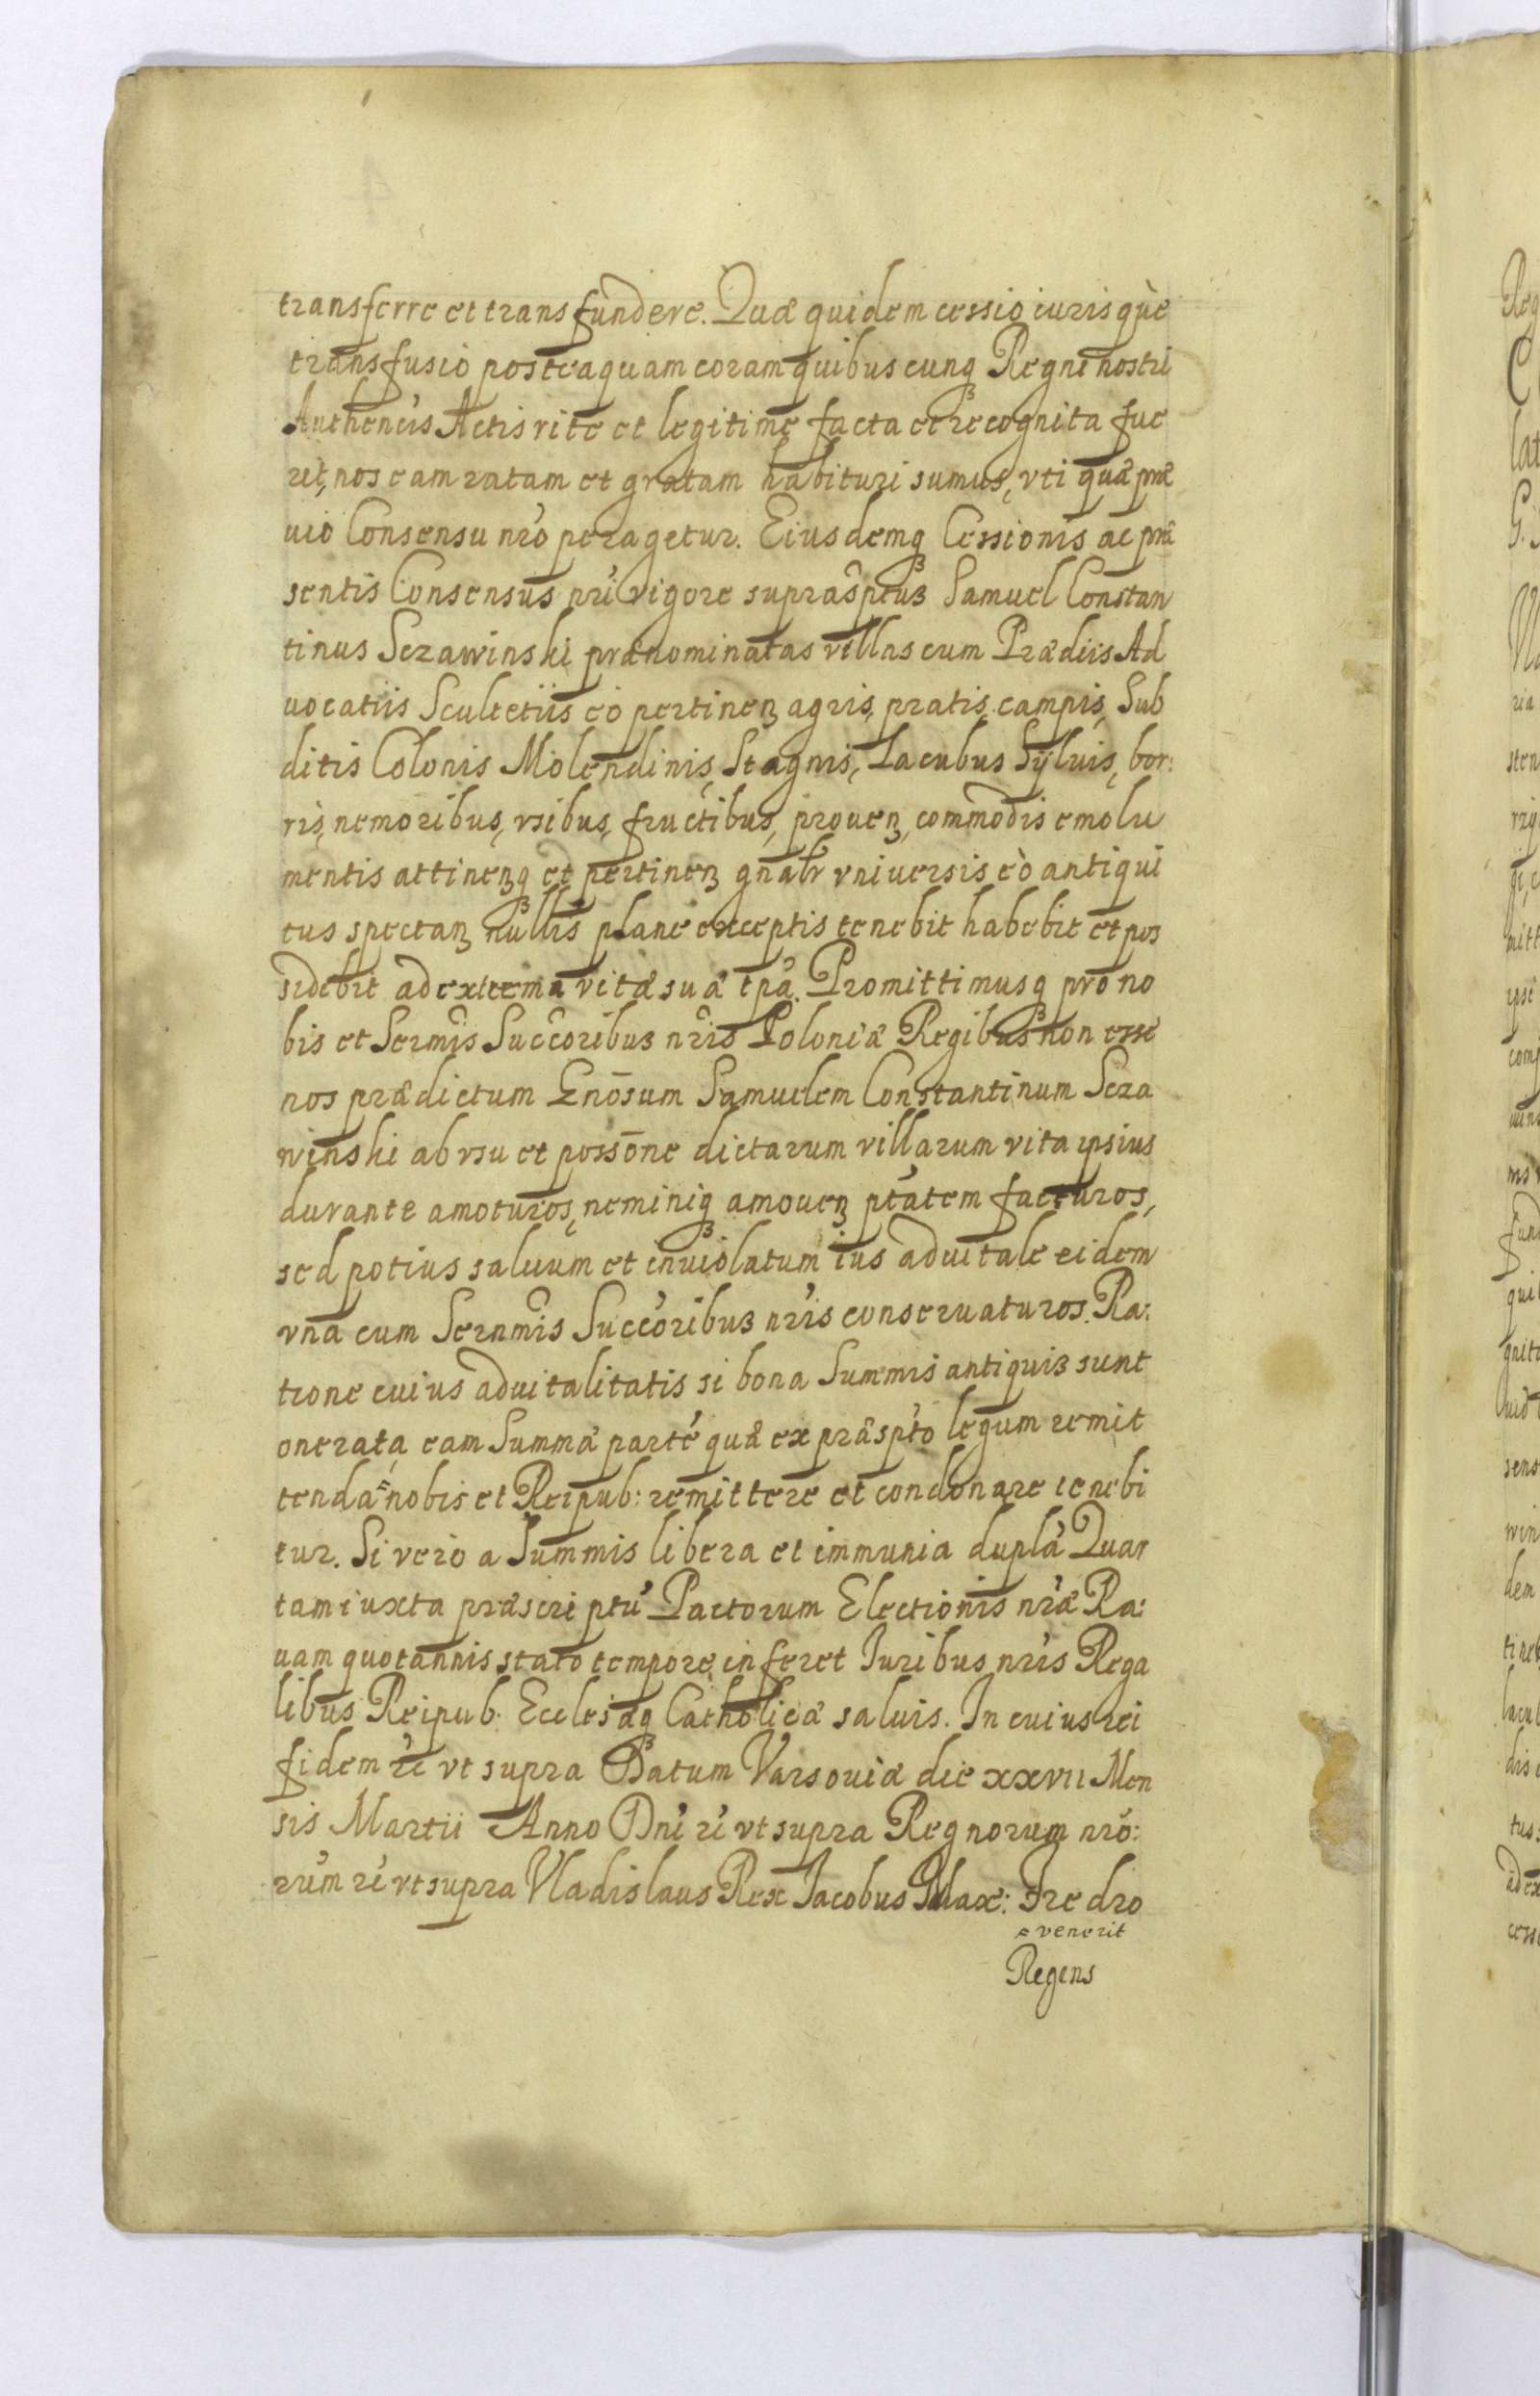 transferre et transfundere. Quæ quidem cessio iurisqùe
transfusio posteaquam coram quibuscunqꝫ Regni nostri
Authencis Actis rite et legitime facta et recognita fue
rit, nos eam ratam et gratam habituri sumus, vti quæ præ
uio Consensu nrõ peragetur. Eiusdemqꝫ Cessionis ac præ
sentis Consensus nri vigore suprasptus Samuel Constan
tinus Sczawinski prænominatas villas cum Prædiis Ad
uocatiis Scultetiis eò pertinenꝫ agris, pratis, campis, Sub
ditis Colonis Molendinis, Stagnis, Lacubus Sÿluis, bor:
ris, nemoribus, vsibus, fructibus, prouenꝫ, commodis emolu
mentis attinenꝫqꝫ et pertinenꝫ gnãlr vniuersis eò antiqui
tus spectanꝫ nullis plane exceptis tenebit habebit et pos
sidebit ad extrema vitæ suæ tpã. Promittimusqꝫ pro no
bis et Sermis Succoribus nris Poloniæ Regibus non esse
nos prædictum Gnõsum Samuelem Constantinum Scza
winski ab vsu et possõne dictarum villarum vita ipsius
durante amoturos, neminiqꝫ amouenꝫ ptãtem facturos,
sed potius saluum et inuiolatum ius aduitale eidem
vna cum Sernmis Succoribus nris conseruaturos. Ra:
tione cuius aduitalitatis si bona Summis antiquis sunt
onerata, eam Summæ parté quæ ex præspto legum remit
tenda nobis et Reipub: remittere et condonare tenebi
tur. Si vero a Summis libera et immunia duplá Quar
tam iuxta præscriptú Pactorum Electionis nræ Ra:
uam quotannis stato tempore inferet Iuribus nris Rega
libus Reipub. Eclesiæqꝫ Catholicæ saluis. In cuius rei
fidem rê vt supra Datum Varsouiæ die xxvii Men
sis Martii Anno Dni rê vt supra Regnorum nró:
rum rê vt supra Vladislaus Rex Iacobus Max: Fredro
venerit
Regens